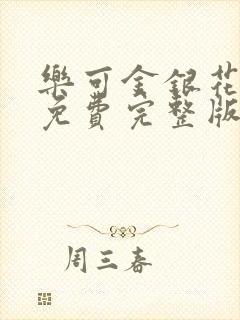 樂可金銀花
免費完整版
周三春